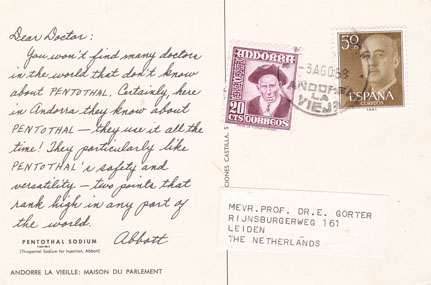 Dear Doctor:
You won't find many doctors
in the world that don't know
about PENTOTHAL. Certainly here
in Andorra they know about
PENTOTHAL — they use it all the
time! They particularly like
PENTOTHAL's safety and
versatility — two points that
rank high in any part of
the world.
Abbott
PENTOTHAL SODIUM
(Thiopental Sodium for Injection, Abbott)
ANDORRE LA VIEILLE: MAISON DU PARLEMENT
CIONES CASTILLA, S
ANDORRA
20
CTS CORREOS
ANDORRA
LA
VIEJA
50
ESPAÑA
CORREOS
MEVR.PROF. DR.E. GORTER
RIJNSBURGERWEG 161
LEIDEN
THE NETHERLANDS